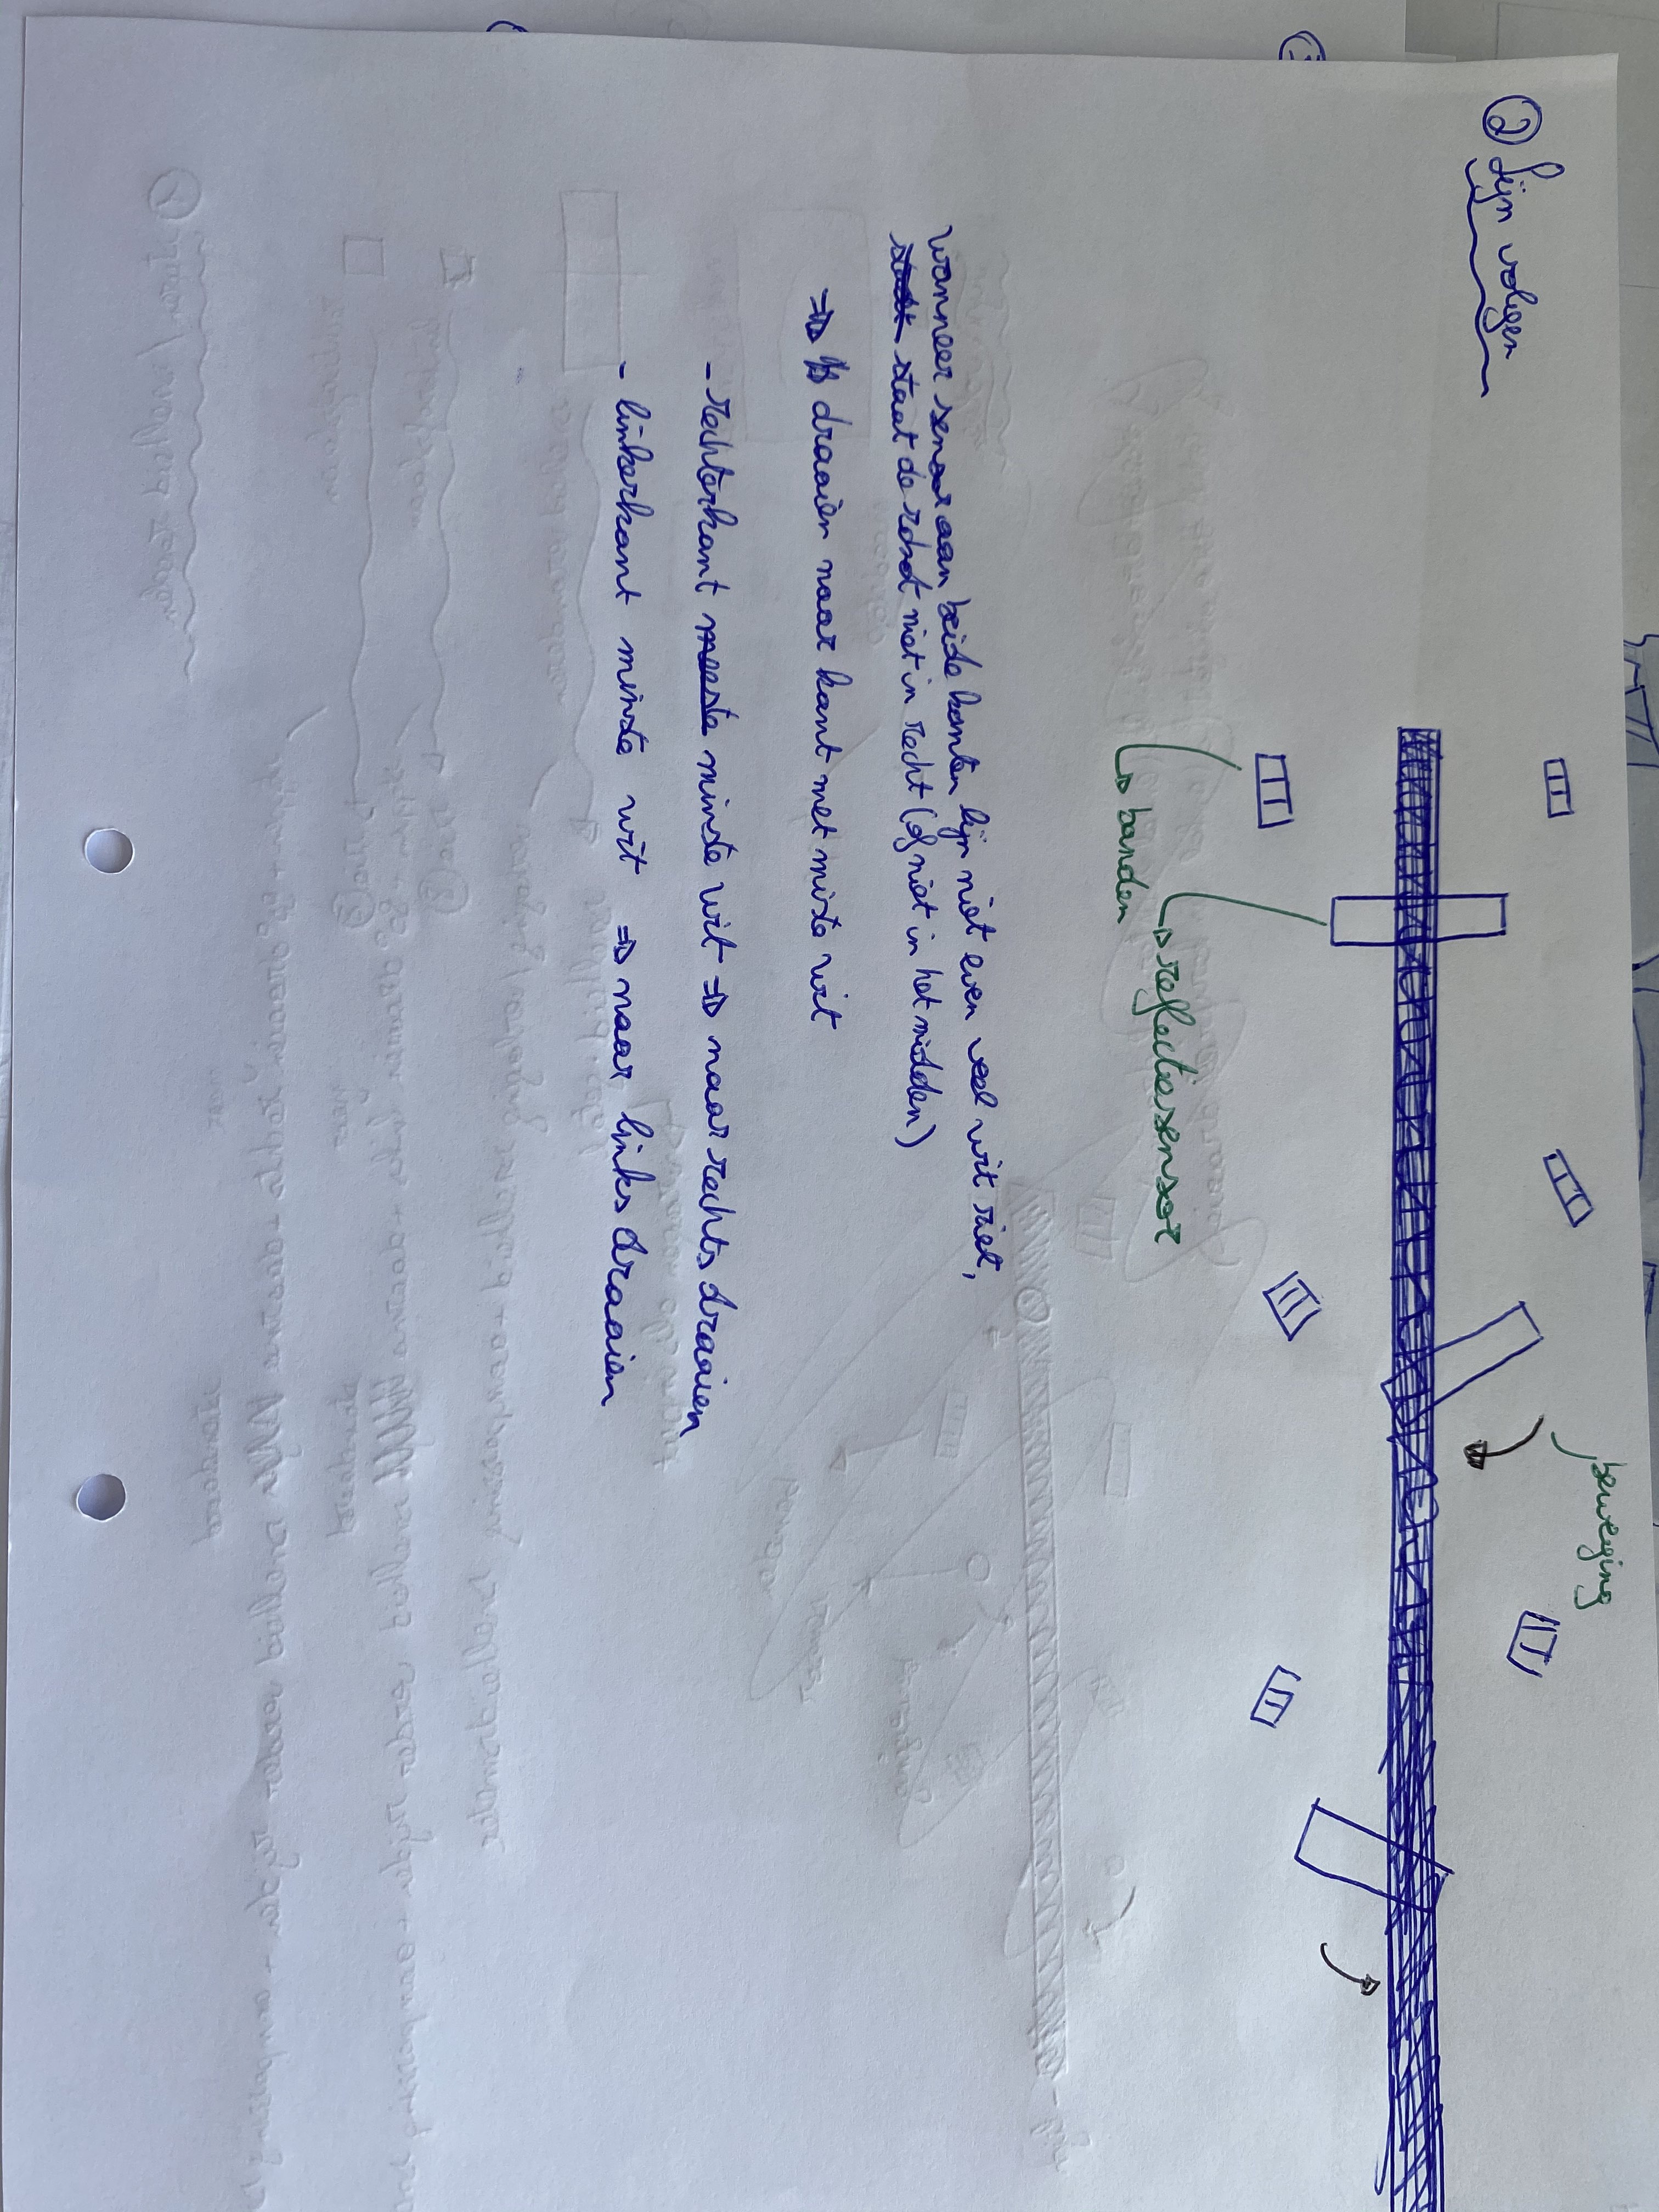 ② Lijn volgen
beweging
reflectiesensor
banden
wanneer sensor aan beide kanten lijn niet even veel wit ziet,
staat de robot niet in recht (of niet in het midden)
⇒ draaien naar kant met minste wit
- rechterkant meeste minste wit ⇒ naar rechts draaien
- linkerkant minste wit ⇒ naar links draaien